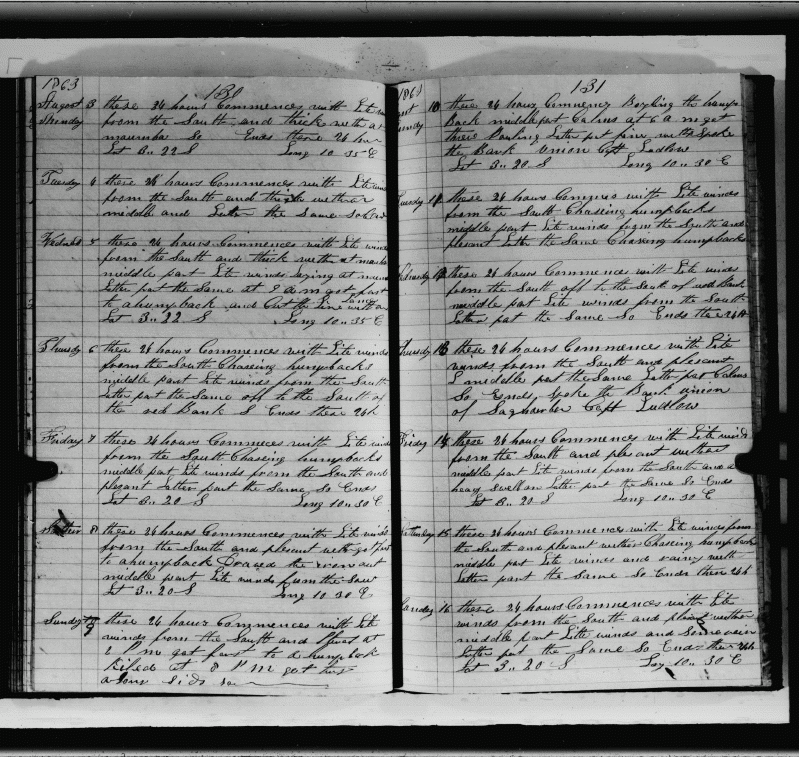 1863
130
August 3 these 24 hours Commences with Lite
Monday from the South and thick weth at
mayumba So Ends these 24 hou
Lat 3.. 22 S Long 10.. 35 E
Tuesday 4 these 24 hours Commences with Lite wind
from the South and thick wether
middle and Latter the Same So Ends
these 24 hours Commences with Lite winds
from the South and thick weth at
middle part Lite winds laying at
Latter part the Same at 9 A m got fast
to a humpback and Cut the Line with
Lance
Lat 3.. 22 S Long 10.. 35 E
Thursdy 6 these 24 hours Commences with Lite winds
from the South Chasing humpbacks
middle part Lite winds from the South
Latter part the Same off to the South of
the red Bank S Ends these 24 h
Friday 7 these 24 hours Commences with Lite winds
from the South Chasing humpbacks
middle part Lite winds from the South and
plesant Latter part the Same So Ends
Lat 3.. 20 S Long 10.. 30 E
8 these 24 hours Commences with Lite winds
from the South and plesant weth got fast
to a humpback the iron out
middle part Lite winds from the
Lat 3.. 20 S Long 10 30 E
Sundy 9 these 24 hours Commences with Lite
winds from the South and at
P m got fast to a humpbak
Kiled at 8 P M got him
a Long Side
131
10 these 24 hours Comencs Boyling the hump
Back middle part Calms at 6 A m got
threw Boyling Latter part fine weth Spoke
the Bark Union Capt Ludlow
Lat 3.. 20 S Long 10.. 30 E
Tuesdy 11 these 24 hours Commences with Lite winds
from the South Chasing humpbacks
middle part Lite winds from the South and
plesant Latter the Same Chasing humpbacks
12 these 24 hours Commences with Lite winds
from the South off to the South of red Bank
middle part Lite winds from the South
Latter part the Same So Ends these 24 h
Thursdy 13 these 24 hours Commences with Lite
winds from the South and plesant
middle part the Same Latter part Calms
So Ends Spoke the Bark Union
of Sagharber Capt Ludlow
Friday 14 these 24 hours Commences with Lite winds
from the South and plesant wether
middle part Lite winds from the South and a
heavy swell on Latter part the Same So Ends
Lat 3.. 20 S Long 10.. 30 E
15 these 24 hours Commences with Lite winds from
the South and plesant wether Chasing humpbacks
middle part Lite winds and rainy weth
Latter part the Same So Ends these 24 h
Sunday 16 these 24 hours Commences with Lite
winds from the South and plesant wether
middle part Lite winds and Some
Latter part the Same So Ends these 24 h
Lat 3.. 20 S Long 10.. 30 E